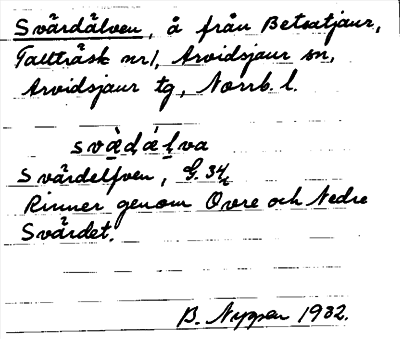 Svärdälven, å från Betsatjaur,
Tallträsk nr 1, Arvidsjaur sn,
Arvidsjaur tg, Norrb. l.
svàdálva
Svärdelfven, G. 34
Rinner genom Övre och Nedre
Svärdet.
B. Nygren 1932.